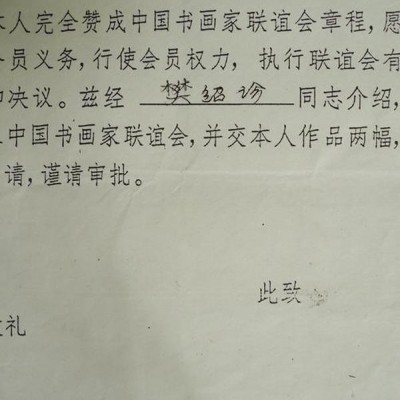 本人完全赞成中国书画家联谊会章程,愿
员义务,行使会员权力,执行联谊会有
决议。兹经 樊绍珍 同志介绍,
中国书画家联谊会,并交本人作品两幅,
请,谨请审批。
此致
礼